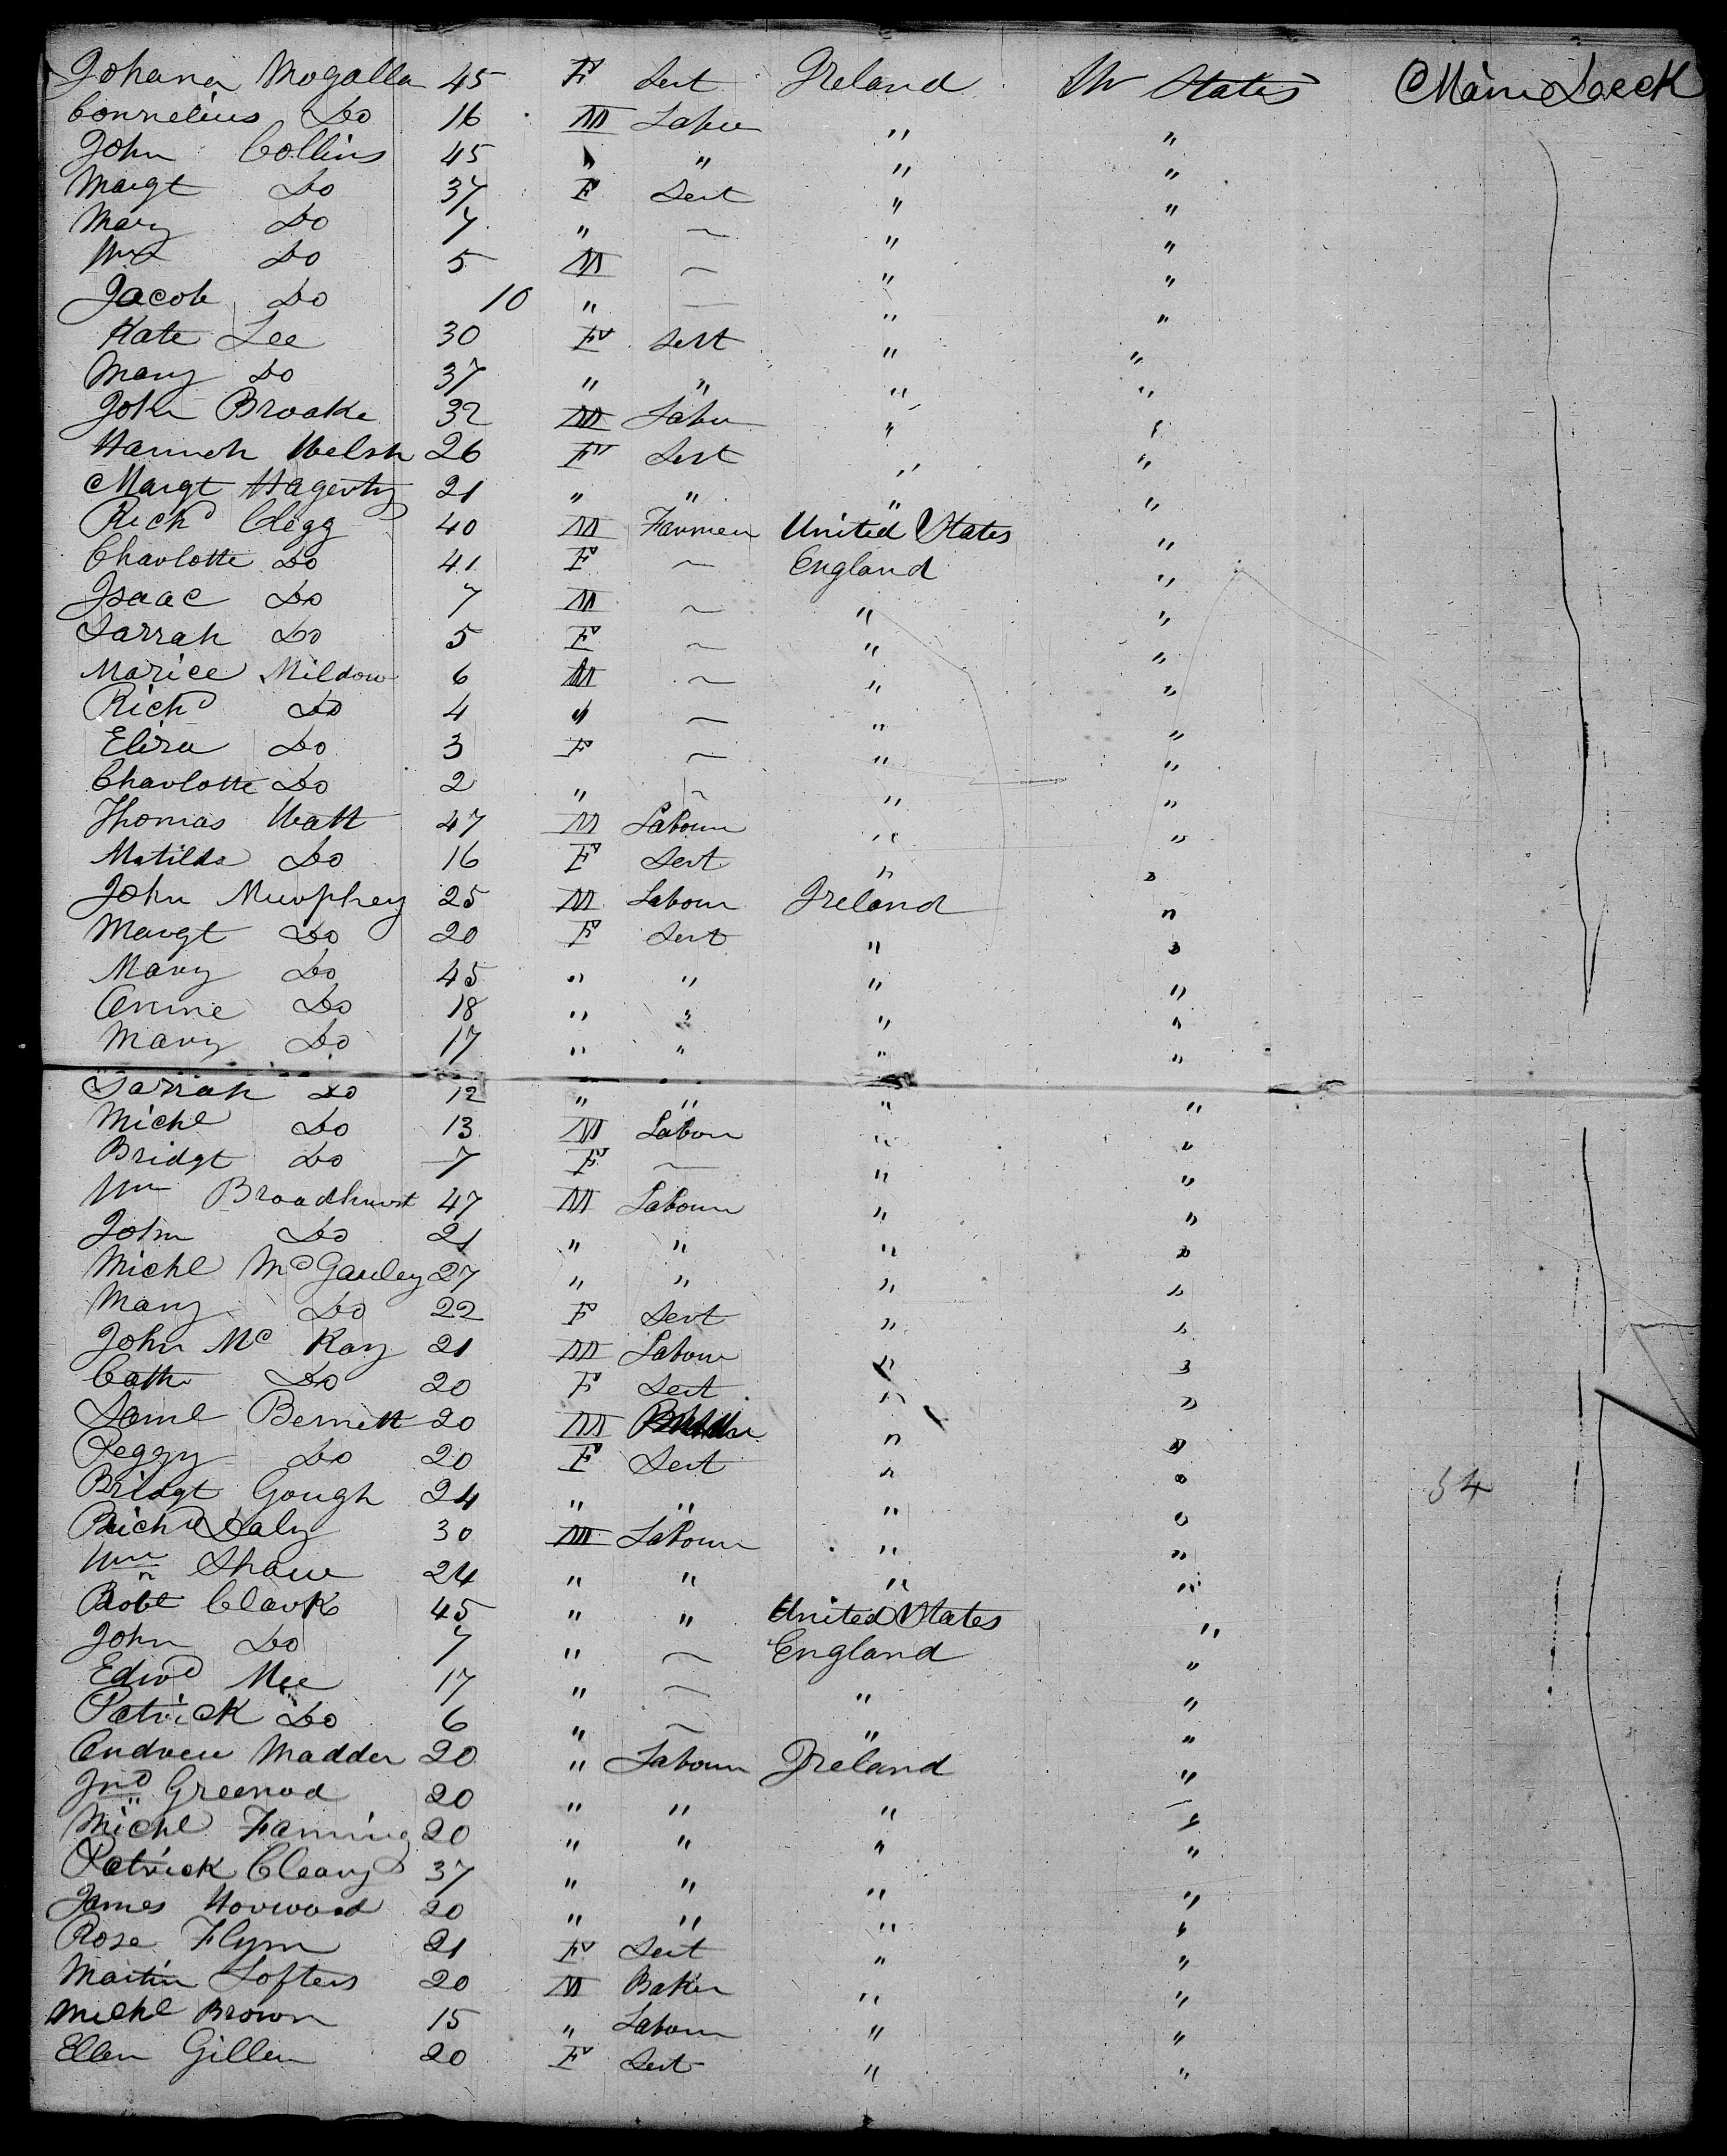 Johana Mogalla 45 F Sert Ireland Un States Main Deck
Connelius Do 16 M Labu " "
John Collins 45 " " " "
Margt Do 37 F Sert " "
Mary Do 7 " ~ " "
Wm Do 5 M ~ " "
Jacob Do 10 " — " "
Kate Lee 30 F Sert " "
Mary Do 37 " " " "
John Broake 32 M Labu " "
Hannoh Welsh 26 F Sert " "
Margt Hagerty 21 " " " "
Richd Clegg 40 M Farmer United States "
Charlotte Do 41 F ~ England "
Isaac Do 7 M ~ " "
Sarrah Do 5 F ~ " "
Marice Mildow 6 M ~ " "
Richd Do 4 " ~ " "
Eliza Do 3 F ~ " "
Charlotte Do 2 " ~ " "
Thomas Watt 47 M Labour " "
Matilda Do 16 F Sert " "
John Murphey 25 M Labour Ireland "
Margt Do 20 F Sert " "
Mary Do 45 " " " "
Anne Do 18 " " " "
Mary Do 17 " " " "
Sarrah Do 12 " " " "
Michl Do 13 M Labour " "
Bridgt Do 7 F ~ " "
Wm Broadhurst 47 M Labour " "
John Do 21 " " " "
Michl McGauley 27 " " " "
Mary Do 22 F Sert " "
John Mc Kay 21 M Labour " "
Cath Do 20 F Sert " "
Saml Bernett 20 M " "
Peggy Do 20 F Sert " "
Bridgt Gough 24 " " " " 54
Richd Daly 30 M Labour " "
Wm Shaw 24 " " " "
Robt Clark 45 " " United States "
John Do 7 " ~ England "
Edwd Mee 17 " ~ " "
Patrick Do 6 " ~ " "
Andrew Madden 20 " Labour Ireland "
Jno Greenod 20 " " " "
Michl Fanning 20 " " " "
Patrick Cleary 37 " " " "
James Horwood 20 " " " "
Rose Flynn 21 F Sert " "
Martin Lofters 20 M Baker " "
Michl Brown 15 " Labour " "
Ellen Gillen 20 F Sert " "